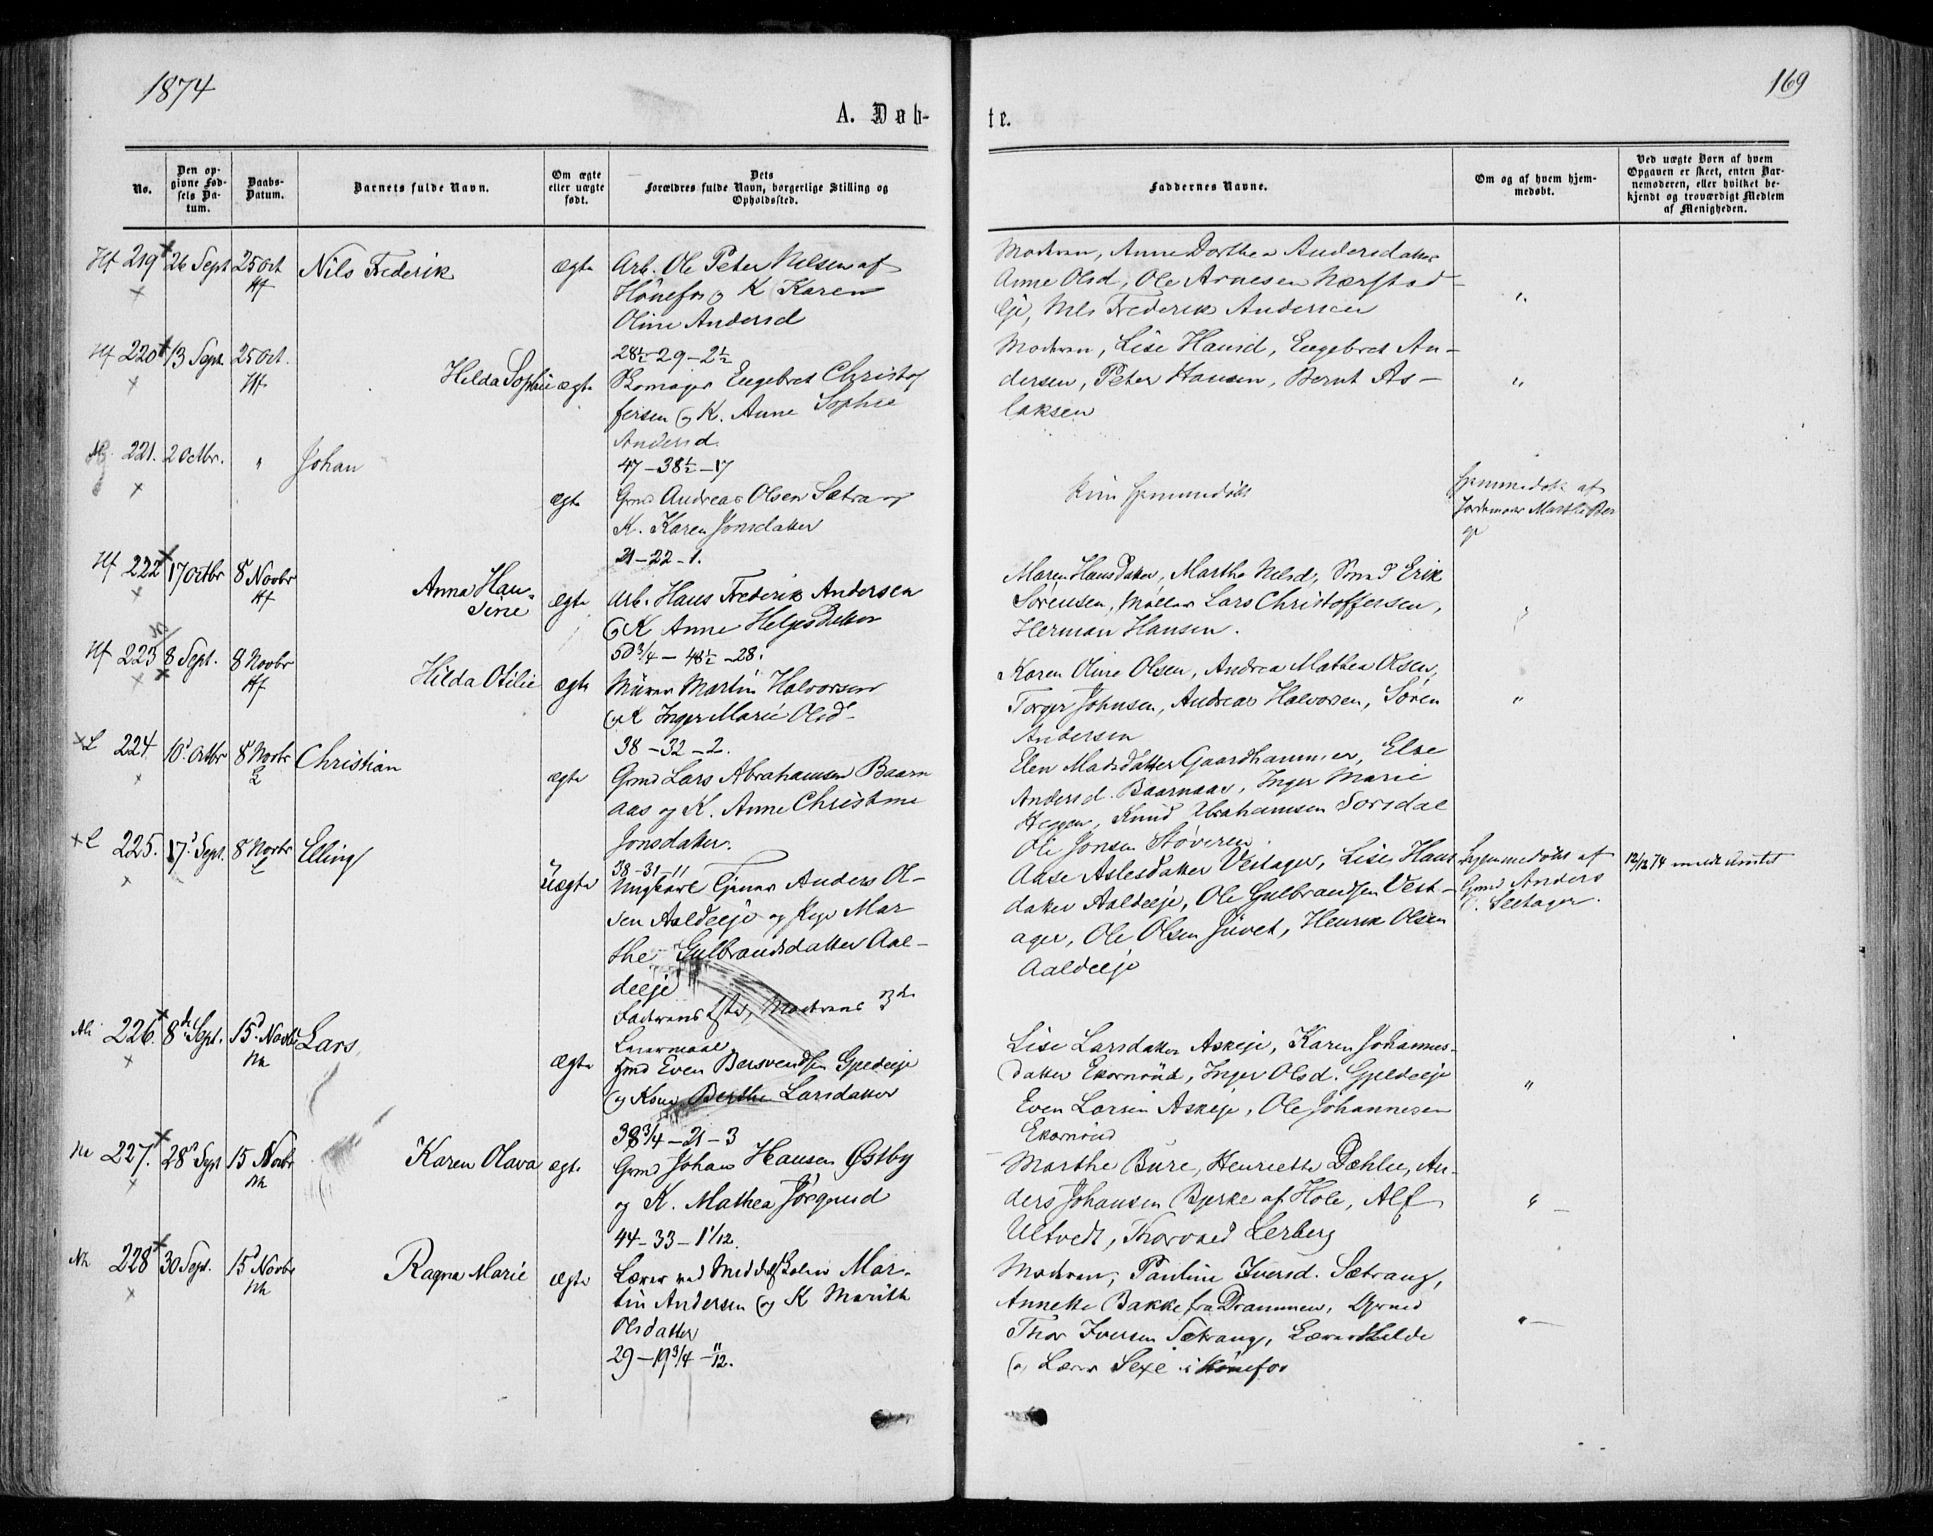 1874
169
A. Døb-
te.
No.
Den op-
givne Fød-
sels Da-
tum.
Daabs-
Datum.
Barnets fulde Navn.
Om ægte
eller uægte
født.
Dets
Forældres fulde Navn, borgerlige Stilling og
Opholdssted.
Faddernes Navne.
Om og af hvem hjem-
medøbt.
Ved uægte Børn af hvem
Opgaven er skeet, enten Bar-
nemoderen, eller hvilket be-
kjendt og troværdigt Medlem
af Menigheden.
Hf 219 26 Sept 25 Oct Nils Frederik ægte Arb. Ole Peter Nilsen af
Hf
Hønefos og K Karen
Oline Andersd
28½-29-2½
Modren, Anne Dorthea Andersdatter
Anne Olsd, Ole Arnesen Nærstad-
eje, Nils Frederik Andersen
"
Hf 220 13 Sept. 25 Oct. Hilda Sophie ægte Skomager Engebret Christof
Hf
fersen og K. Anne Sophie
Andersd.
47-38½-17
Modren, Lise Hansd, Engebret An-
dersen, Peter Hansen, Bernt As-
laksen
"
221. 2 Octbr. " Johan
ægte Grmd Andreas Olsen Sætra og
K. Karen Jonsdatter
21-22-1.
Kun hjemmedøbt
Hjemmedøbt af
Jordemoer Marthe Ber
ge
Hf 222 17 Octbr 8 Novbr Anna Han-
sine
Hf
ægte Arb. Hans Frederik Andersen
og K Anne Helgesdatter
50¾-48½-28.
Maren Hansdatter, Marthe Nilsd, Smed Erik
Sørensen, Møller Lars Christoffersen,
Herman Hansen.
"
Hf 223 8 Sept. 8 Novbr Hilda Otilie ægte Murer Martin Halvorsen
Hf
og K Inger Marie Olsd-
38-32-2.
Karen Oline Olsen, Andrea Mathea Olsen,
Torger Johnsen, Andreas Halvorsen, Søren
Andersen
"
L 224. 10 Octbr 8 Novbr Christian
L
ægte Grmd Lars Abrahamsen Baarn
aas og K. Anne Christine
Jonsdatter.
38-31-11
Elen Madsdatter Gaardhammer, Else
Andersd. Baarnaas, Inger Marie
Heggen, Knud Abrahamsen Sorsdal
Ole Jonsen Støveren.
L 225. 17 Sept. 8 Novbr Elling
L
uægte Ungkarl Tjener Anders Ol-
sen Aaldeeje og Pige Mar-
the Gulbrandsdatter Aal-
deeje
Faderens 1ste, Moderens 3die
Leiermaal
Aase Aslesdatter Vestager, Lise Hans
datter Aaldeeje, Ole Gulbrandsen Vest-
ager, Ole Olsen Juvet, Henrik Olsen
Aaldeeje
Hjemmedøbt af
Grmd Anders
O. Sletager.
12/12 74 meldt Amtet
226. 8de Sept. 15 Novbr Lars
Nh
ægte Grmd Even Bersvendsen Gjeldeeje
og Kone Berthe Larsdatter
38¾-21-3
Lise Larsdatter Askeje, Karen Johannes-
datter Ekornrud, Inger Olsd. Gjeldeeje
Even Larsen Askeje, Ole Johannesen
Ekornrud
"
227. 28 Sept 15 Novbr Karen Olava ægte Grmd Johan Hansen Østby
Nh
og K. Mathea Jørgensd
44-33-1 1/12.
Marthe Bure, Henriette Dæhlie, An-
ders Johansen Bjerke af Hole, Alf
Ultvedt, Thorvald Lerberg
"
Nh. 228 30 Sept. 15 Novbr Ragna Marie ægte Lærer ved Middelskolen Mar-
Nh
tin Andersen og K Marith
Olsdatter
29-19¾-11/12.
Modren, Pauline Iversd. Sætrang,
Annette Bakke fra Drammen, Grmd
Thor Iversen Sætrang, Lærer Hilde
og Lærer Sexe i Hønefos
"